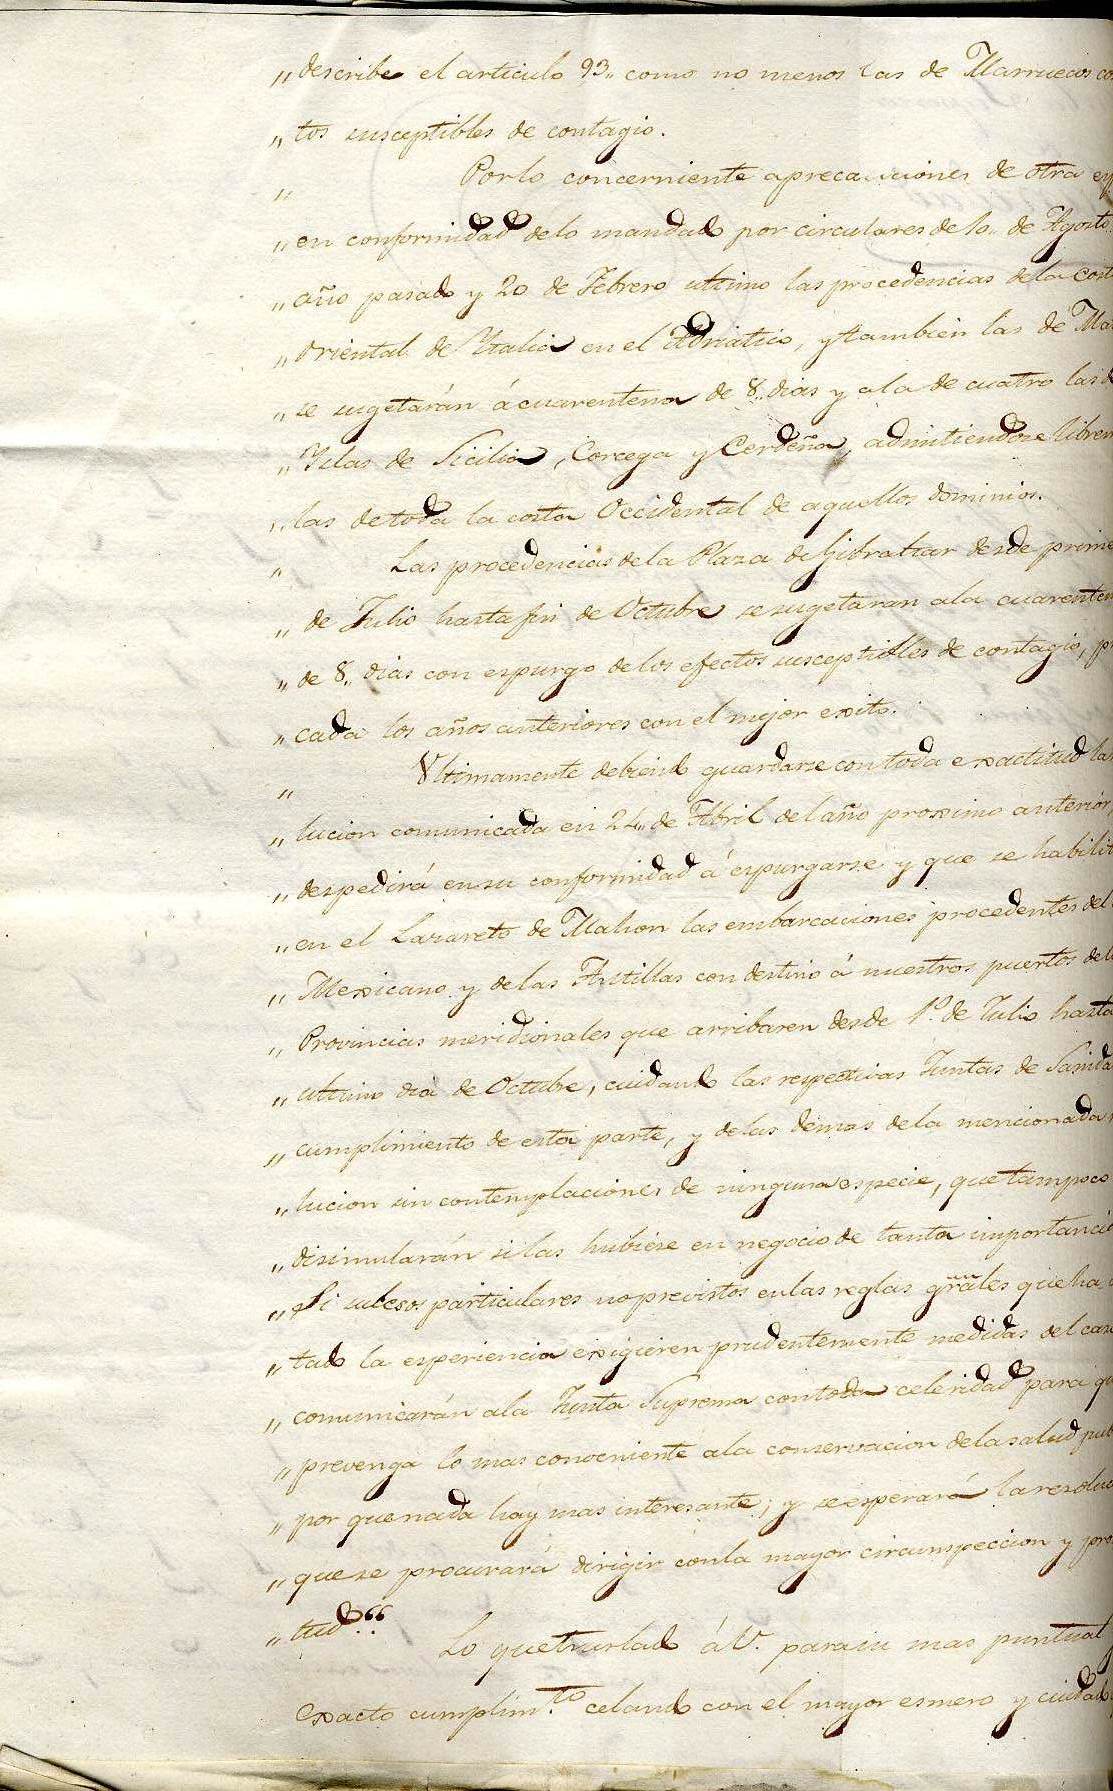 „ describe el articulo 93„ como no menos las de Marruecos co
„ tos susceptibles de contagio.
„ Porlo concerniente aprecauciones de otra esp
„ en conformidad delo mandado por circulares de 10„ de Agosto
„ año pasado y 20 de Febrero ultimo las procedencias dela cost
„ oriental de Ytalia en el Adriatico, y tambien las de Mal
„ se sugetarán á cuarentena de 8„ dias y ala de cuatro las d
„ Yslas de Sicilia, Corcega y Cerdeña, admitiendose librem
„ las detoda la costa Occidental de aquellos dominios.
„ Las procedencias dela Plaza de Gibraltar desde prime
„ de Julio hasta fin de Octubre se sugetaran ala cuarenten
„ de 8„ dias con espurgo delos efectos susceptibles de contagio, p
„ cada los años anteriores con el mejor exito.
„ Ultimamente debiendo guardarse contoda exactitud la
„ lucion comunicada en 24„ de Abril del año proximo anteriór,
„ despedirá ensu conformidad á espurgarse y que se habilit
„ en el Lazareto de Mahon las embarcaciones procedentes del
„ Mexicano y delas Antillas con destino á nuestros puertos del
„ Provincias meridionales que arribaren desde 1º de Julio hasta
„ ultimo dia de Octubre, cuidando las respectivas Juntas de Sanida
„ cumplimiento de esta parte, y delas demas dela mencionada
„ lucion sin contemplaciones de ninguna especie, quetampoco
„ disimularán silas hubiese en negocio de tanta importancia
„ Si sucesos particulares noprevistos enlas reglas grales queha
„ tado la esperiencia exigieren prudentemente medidas del caso
„ comunicarán ala Junta Suprema contoda celeridad para qu
„ prevenga lo mas conveniente ala conservacion delasalud pub
„ por quenada hay mas interesante; y seesperará laresoluc
„ quese procurará dirigir conla mayor circunspeccion y pron
„ tud “
Lo quetraslado á V. parasu mas puntual y
exacto cumplim.to celando con el mayor esmero y cuidado